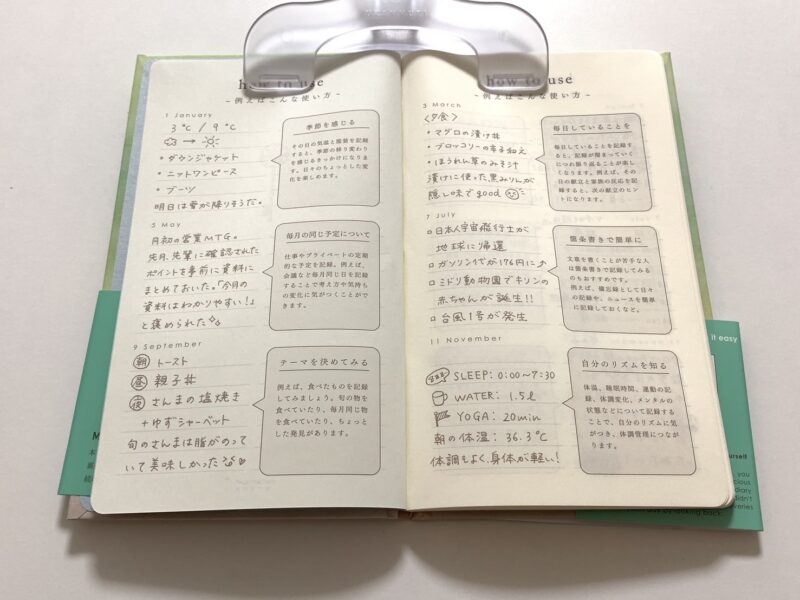 how to use
~ 例えばこんな使い方 ~
1 January
3℃ / 9℃
→
・ダウンジャケット
・ニットワンピース
・ブーツ
明日は雪が降りそうだ。
季節を感じる
その日の気温と服装を記録
すると、季節の移り変わり
を感じるきっかけになりま
す。日々のちょっとした変
化を楽しめます。
5 May
月初の営業MTG。
先月、先輩に確認された
ポイントを事前に資料に
まとめておいた。「今月の
資料はわかりやすい!」
と褒められた
毎月の同じ予定について
仕事やプライベートの定期
的な予定を記録。例えば、
会議など毎月同じ日を記録
することで考え方や気持ち
の変化に気がつくことがで
きます。
9 September
朝 トースト
昼 親子丼
夜 さんまの塩焼き
+ゆずシャーベット
旬のさんまは脂がのって
いて美味しかった
テーマを決めてみる
例えば、食べたものを記録
してみましょう。旬の物を
食べていたり、毎月同じ物
を食べていたり、ちょっと
した発見があります。
how to use
~ 例えばこんな使い方 ~
3 March
〈夕食〉
・マグロの漬け丼
・ブロッコリーの辛子和え
・ほうれん草のみそ汁
漬けに使った黒みりんが
隠し味でgood
毎日していることを
毎日していることを記録す
ると、記録が溜まっていく
につれ振り返ることが楽し
くなります。例えば、その
日の献立と家族の反応を記
録すると、次の献立のヒン
トになります。
7 July
□ 日本人宇宙飛行士が
地球に帰還
□ ガソリン代が176円に
□ ミドリ動物園でキリンの
赤ちゃんが誕生!!
□ 台風1号が発生
箇条書きで簡単に
文章を書くことが苦手な人
は箇条書きで記録してみる
のもおすすめです。
例えば、備忘録として日々
の記録や、ニュースを簡単
に記録しておくなど。
11 November
SLEEP: 0:00~7:30
WATER: 1.5ℓ
YOGA: 20min
朝の体温: 36.3℃
体調もよく、身体が軽い!
自分のリズムを知る
体温、睡眠時間、運動の記
録、体調変化、メンタルの
状態などについて記録する
ことで、自分のリズムに気
がつき、体調管理につなが
ります。
it easy
yourself
you
cious
diary
didn't
overies
by looking back.